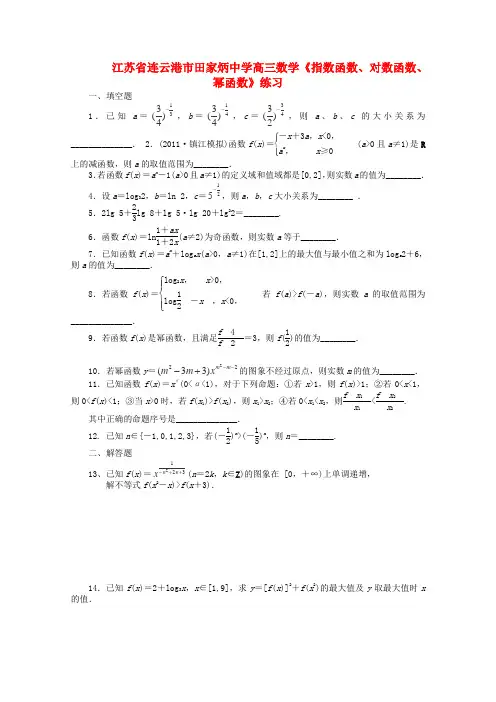 江苏省连云港市田家炳中学高三数学《指数函数、对数函数、
幂函数》练习
一、填空题
1．已知 a＝(3/4)^{-1/3}，b＝(3/4)^{-1/4}，c＝(3/2)^{-3/4}，则 a、b、c 的大小关系为
______________． 2．(2011·镇江模拟)函数f(x)＝{－x＋3a，x<0， a^x，　x≥0 (a>0且a≠1)是R
上的减函数，则a的取值范围为________．
3.若函数f(x)＝a^x－1(a>0且a≠1)的定义域和值域都是[0,2],则实数a的值为________．
4．设a＝log₃2，b＝ln 2，c＝5^{-1/2}，则a，b，c大小关系为________ ．
5．2lg 5＋2/3 lg 8＋lg 5·lg 20＋lg²2＝________.
6．函数f(x)＝ln (1＋ax)/(1＋2x) (a≠2)为奇函数，则实数a等于________．
7．已知函数f(x)＝a^x＋log_a x(a>0，a≠1)在[1,2]上的最大值与最小值之和为log_a2＋6，
则a的值为________．
8．若函数f(x)＝{log₂x，　x>0， log 1/2 －x ，x<0， 若f(a)>f(－a)，则实数a的取值范围为
______________．
9．若函数f(x)是幂函数，且满足 f 4 / f 2 ＝3，则f(1/2)的值为________．
10．若幂函数y＝(m²－3m＋3)x^{m²－m－2}的图象不经过原点，则实数m的值为________．
11．已知函数f(x)＝x^α(0<α<1)，对于下列命题：①若x>1，则f(x)>1；②若0<x<1，
则0<f(x)<1；③当x>0时，若f(x₁)>f(x₂)，则x₁>x₂；④若0<x₁<x₂，则 f x₁ / x₁ < f x₂ / x₂.
其中正确的命题序号是______________．
12. 已知n∈{－1,0,1,2,3}，若(－1/2)^n>(－1/5)^n，则n＝________.
二、解答题
13、已知f(x)＝x^{1/(－n²＋2n＋3)}(n＝2k，k∈Z)的图象在 [0，＋∞)上单调递增，
解不等式f(x²－x)>f(x＋3)．
14．已知f(x)＝2＋log₃x，x∈[1,9]，求y＝[f(x)]²＋f(x²)的最大值及y取最大值时x
的值．